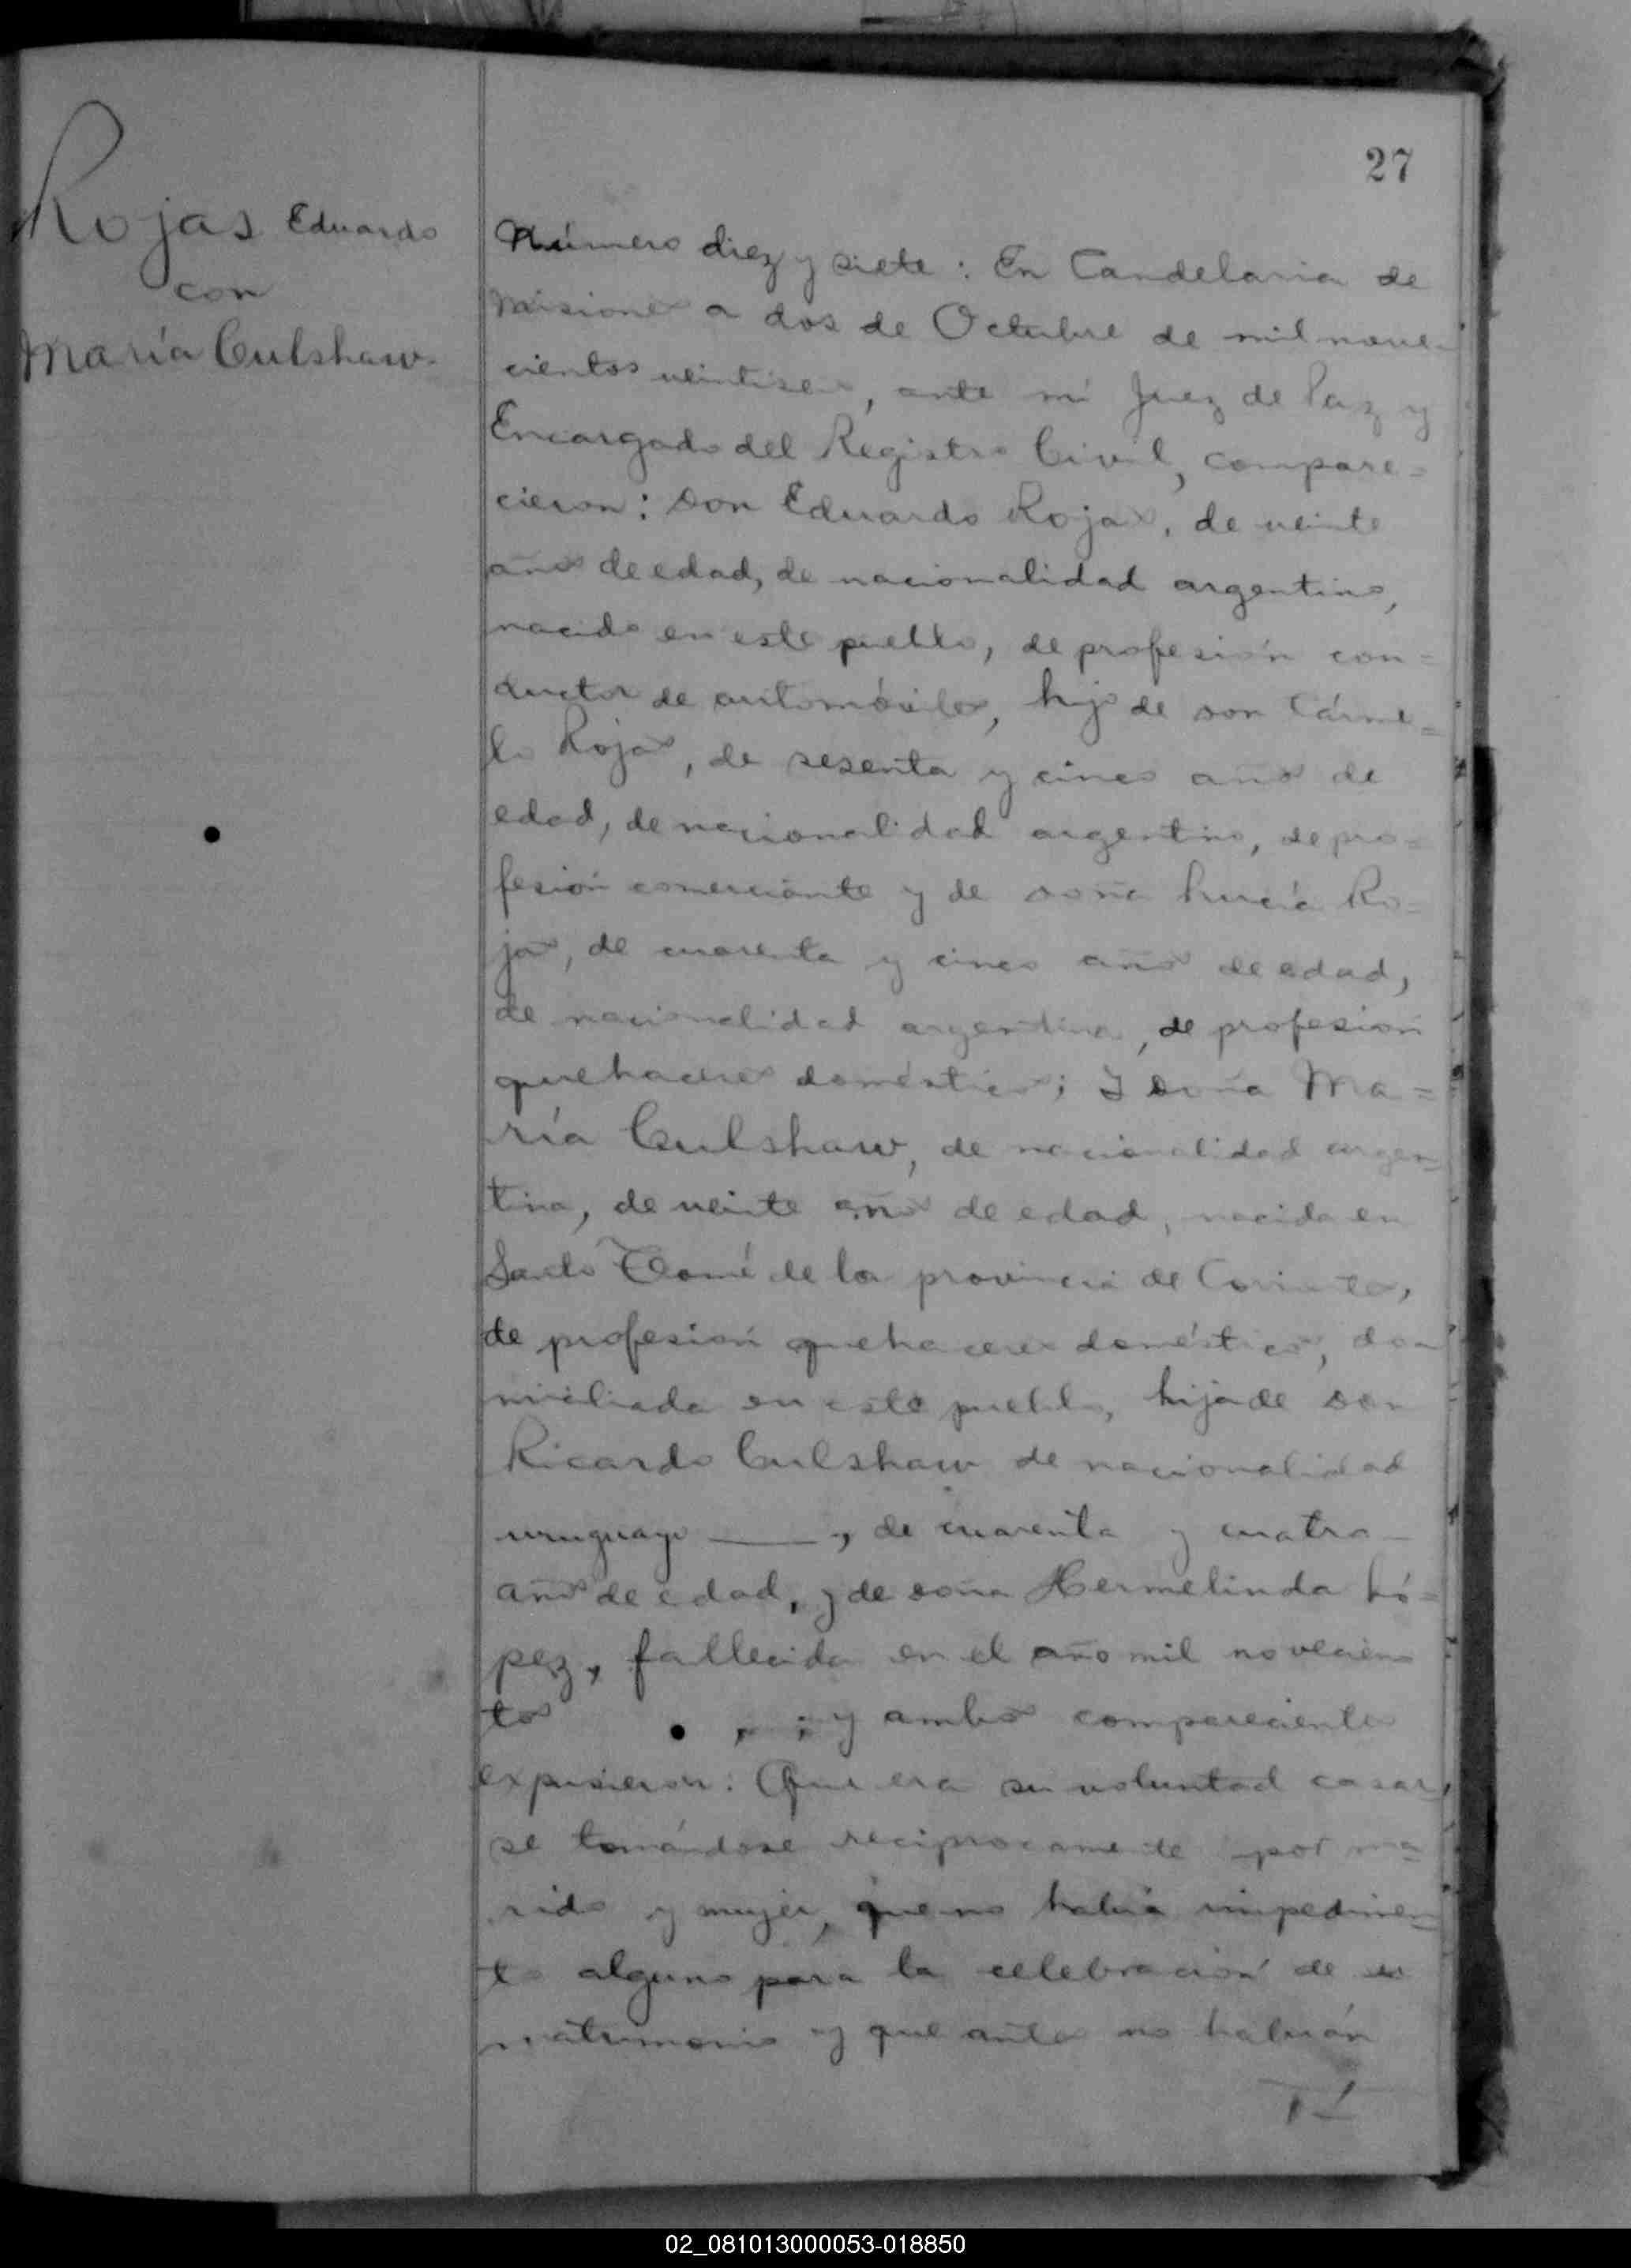 27
Rojas Eduardo
con
María Culshaw.
Número diez y siete: En Candelaria de
Misiones a dos de Octubre de mil nove-
cientos veintiseis, ante mí Juez de Paz y
Encargado del Registro Civil, compare=
cieron: don Eduardo Rojas, de veinte
años de edad, de nacionalidad argentino,
nacido en este pueblo, de profesión con=
ductor de automóviles, hijo de don Cárme=
lo Rojas, de sesenta y cinco años de
edad, de nacionalidad argentino, de pro=
fesión comerciante y de doña Lucía Ro=
jas, de cuarenta y cinco años de edad,
de nacionalidad argentina, de profesión
quehaceres domésticos; I doña Ma=
ría Culshaw, de nacionalidad argen=
tina, de veinte años de edad, nacida en
Santo Tomé de la provincia de Corrientes,
de profesión quehaceres domésticos, do=
miciliada en este pueblo, hija de don
Ricardo Culshaw de nacionalidad
uruguayo ——, de cuarenta y cuatro
años de edad, y de doña Hermelinda Ló=
pez, fallecida en el año mil novecien
tos , ; y ambos comparecientes
expusieron: Que era su voluntad casar,
se tomándose reciprocamente por ma=
rido y mujer, que no había impedimen=
to alguno para la celebración de su
matrimonio y que antes no habían
02_081013000053-018850